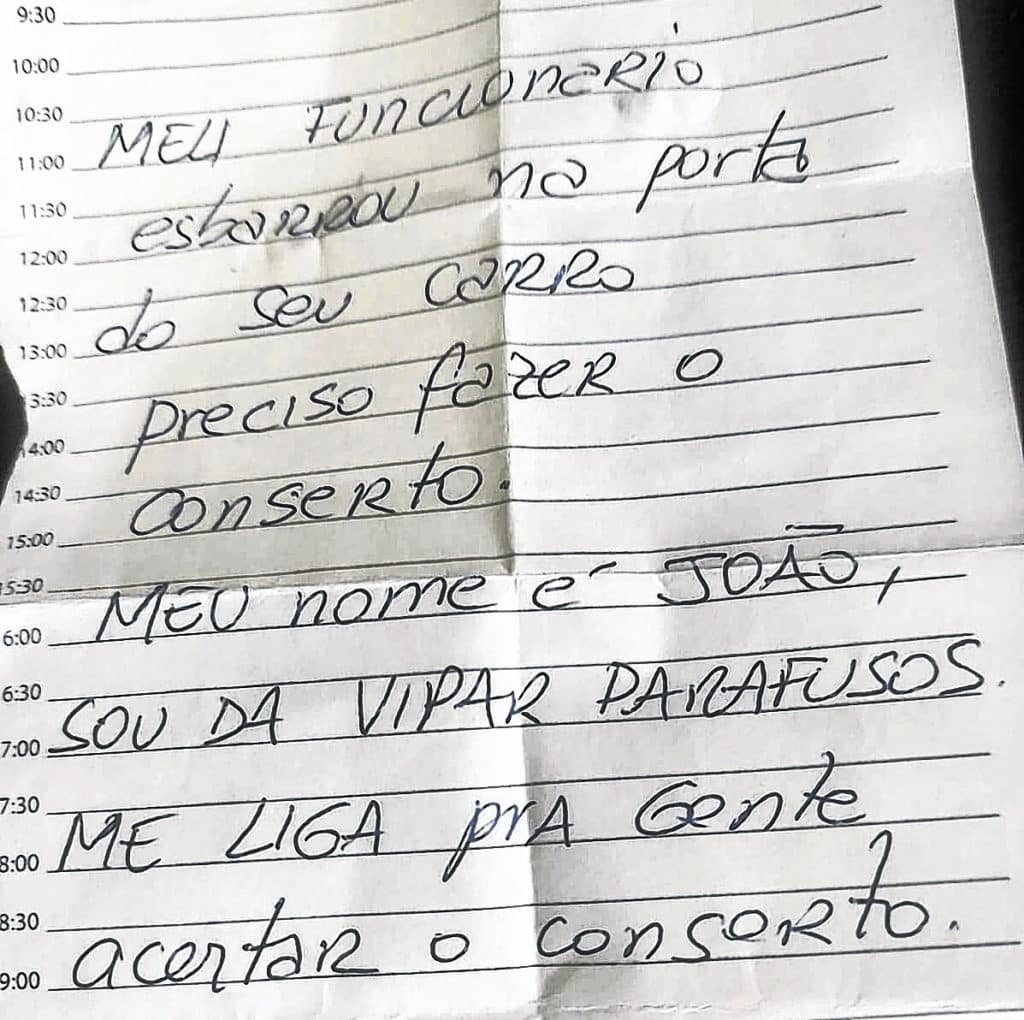 9:30
10:00
10:30
MEU FUNCIONÁRIO
11:00
esbarrou na porta
11:30
12:00
do seu carro
12:30
13:00
preciso fazer o
3:30
4:00
conserto.
14:30
15:00
MEU nome é JOÃO,
5:30
6:00
SOU DA VIPAR PARAFUSOS.
6:30
7:00
ME LIGA prA Gente
7:30
8:00
acertar o conserto.
8:30
9:00